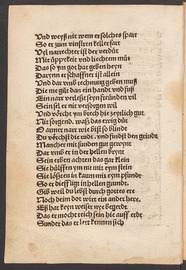 Und weyß nit wem er solches spart
So er zum vinstern keller fart
Vil narrechter ist der verdůt
Mit üppikeit und liechtem můt
Das so ym got hat geben heyn
Darynn er schaffner ist allein
Und dar umb rechnung geben můß
Die me gilt dan ein handt und fůß
Ein narr verlest synn fründen vil
Sein sel er nit versorgen wil
Und vörcht ym brech hie zeytlich gut
Nit sorgend, waß das ewig důt
O armer narr wie bistu so blindt
Du vörchst die rud, und findst den grindt
Mancher mit sunden gut gewynt
Dar umb er in der hellen brynt
Sein erben achten das gar klein
Sie hülffen ym nit mit eym stein
Sie lößten in kaum mit eym pfundt
So er dieff ligt in hellen grundt
Gib weil du lebst durch gottes er
Noch deim dot wirt ein ander herr
Eß hat keyn weiser nye begerdt
Das er moecht reich sein hie auff erdt
Sunder das er lert kennen sich